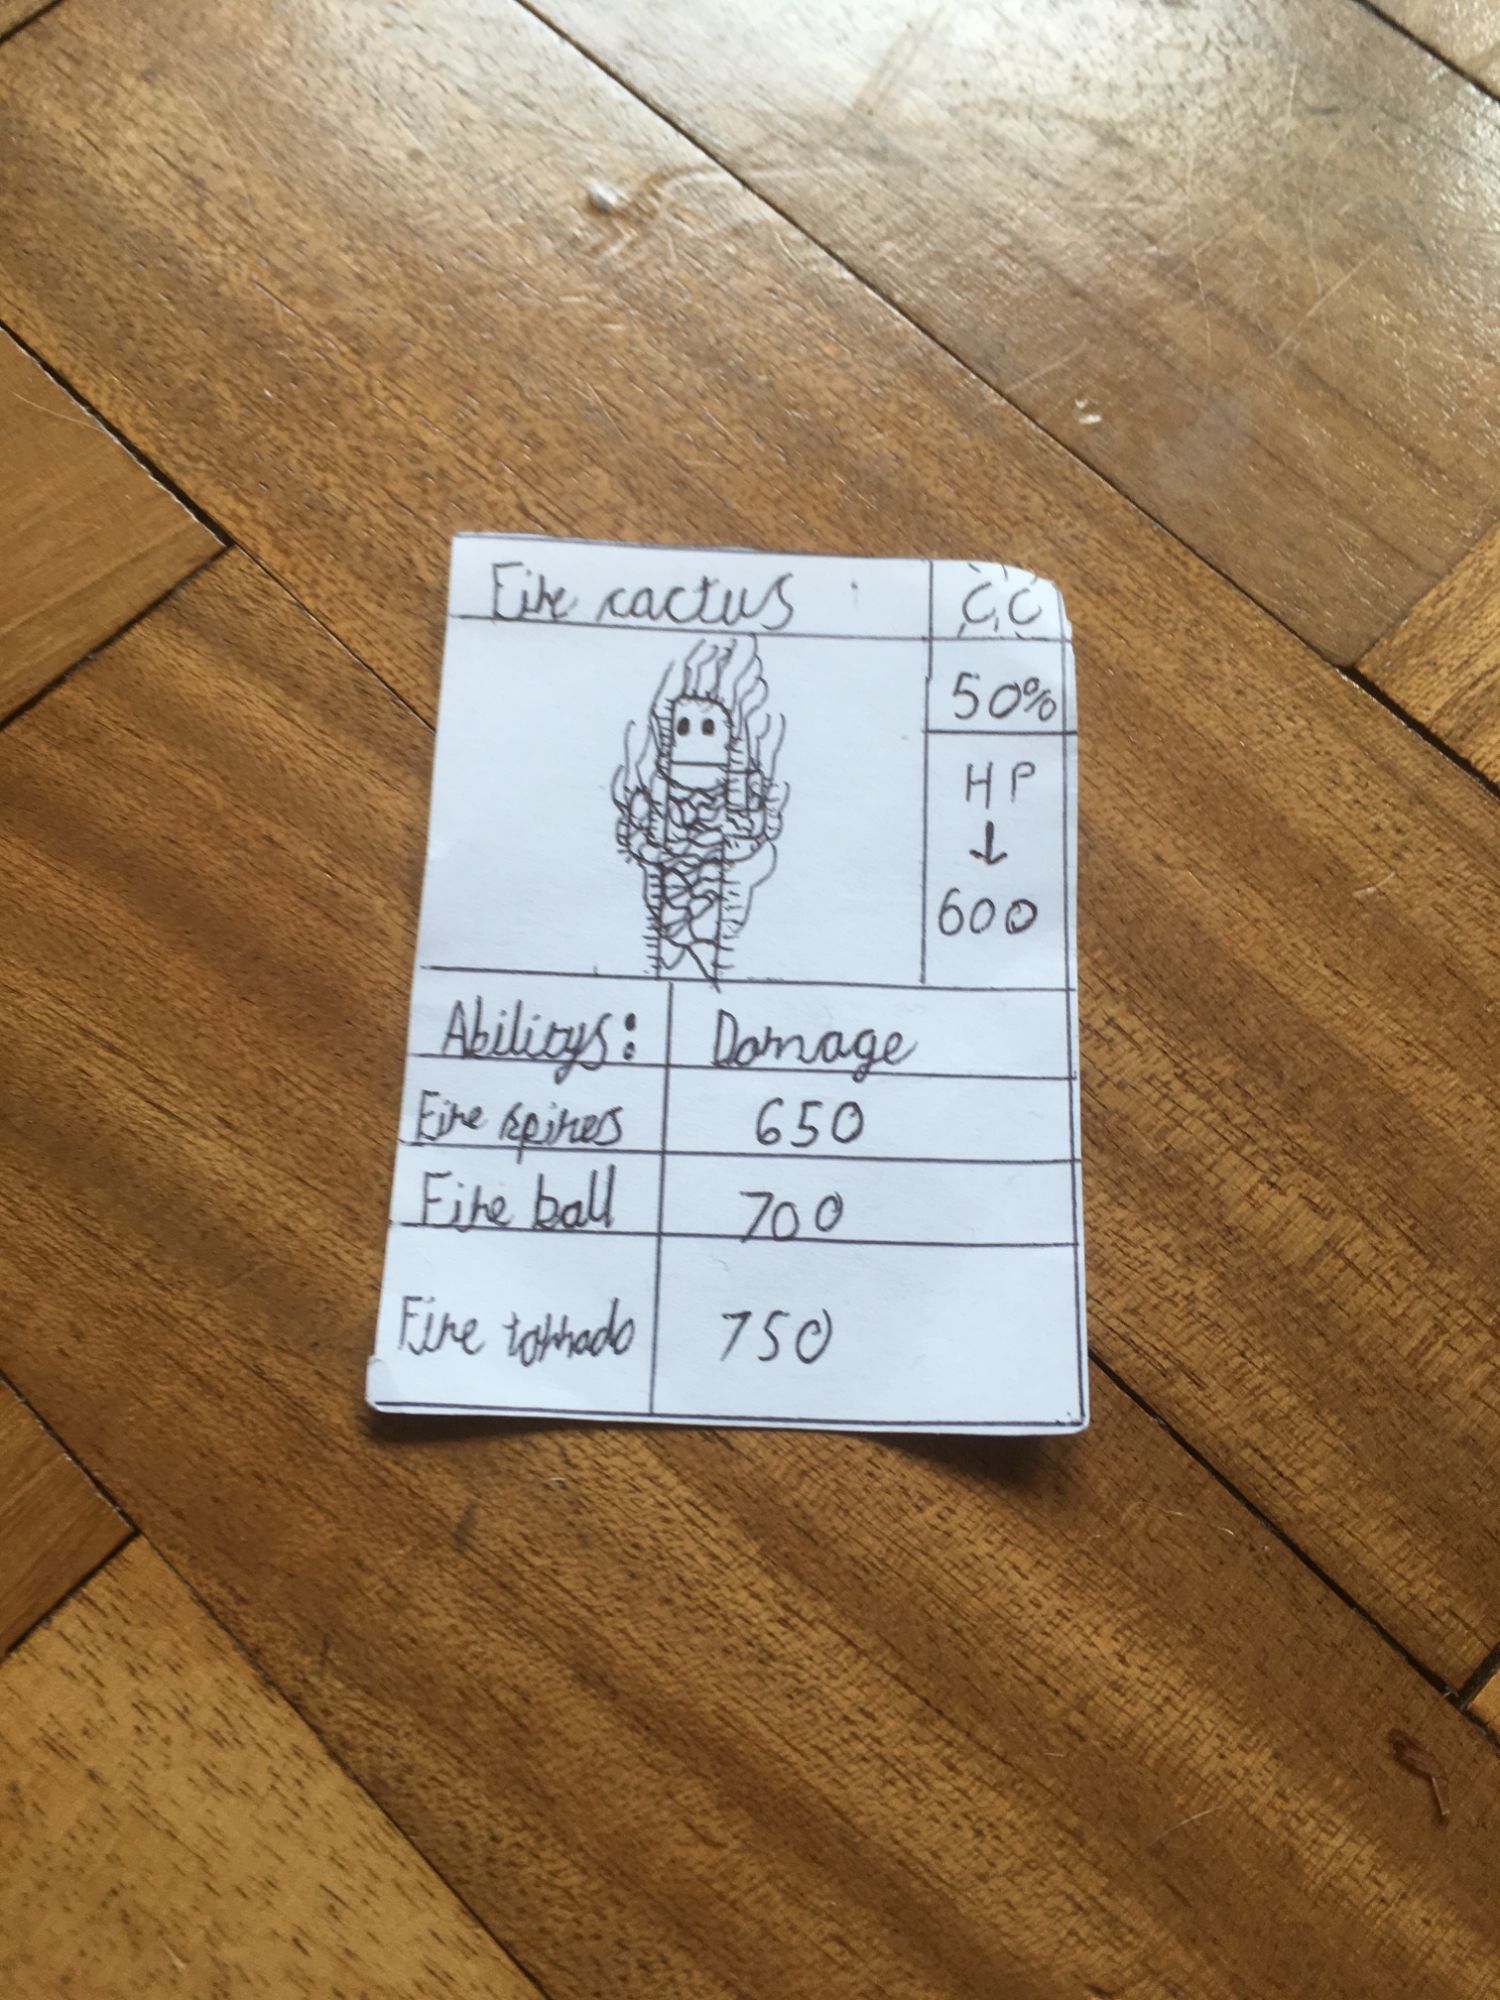 Fire cactus
C.C
50%
HP
↓
600
Abilitys: Damage
Fire spines 650
Fire ball 700
Fire tornado 750